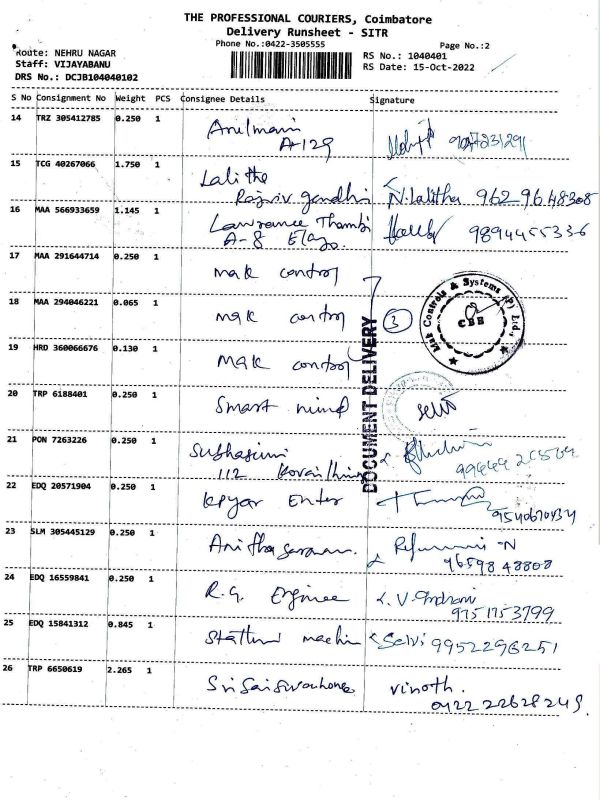 THE PROFESSIONAL COURIERS, Coimbatore
Delivery Runsheet - SITR
Phone No.:0422-3505555
Page No.:2
Route: NEHRU NAGAR
RS No.: 1040401
Staff: VIJAYABANU
RS Date: 15-Oct-2022
DRS No.: DCJB104040102
S No Consignment No Weight PCS Consignee Details Signature
14 TRZ 305412785 0.250 1
A-129
15 TCG 40267066 1.750 1 Lalitha
Rajiv gandhi N.Lalitha 9629648308
16 MAA 566933659 1.145 1 Lawrance Thambi
A-8 9894455336
17 MAA 291644714 0.250 1 mak control
18 MAA 294046221 0.065 1 mak control 3
Mak Controls & Systems (P) Ltd.
CBE
19 HRD 360066676 0.130 1 mak control
DOCUMENT DELIVERY
20 TRP 6188401 0.250 1 Smart mind
21 PON 7263226 0.250 1 Subhasini
112
22 EDQ 20571904 0.250 1 Enter
23 SLM 305445129 0.250 1
9659848808
24 EDQ 16559841 0.250 1 R.G. Engineer
9751753799
25 EDQ 15841312 0.845 1 Selvi 9952296251
26 TRP 6650619 2.265 1 vinoth.
0422 22628249.